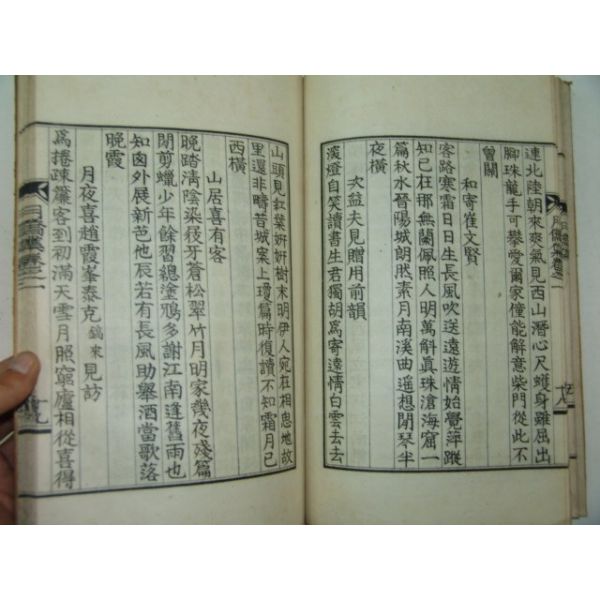 連北陸朝來爽氣見西山潛心尺蠖身雖屈出
脚珠龍手可攀愛爾家僮能解意柴門從此不
曾關
和寄崔文賢
客路寒霜日日生長風吹送遠遊情始覺萍蹤
知己在那無蘭佩照人明萬斛眞珠滄海窟一
篇秋水晉陽城朗然素月南溪曲遥想閒琴半
夜橫
次益夫見贈用前韻
溪燈自笑讀書生君獨胡爲寄遠情白雲去去
山頭見紅葉姸姸樹末明伊人宛在相思地故
里還非疇昔城案上瓊篇時復讀不知霜月已
西橫
山居喜有客
晩踏淸陰染屐牙蒼松翠竹月明家幾夜殘篇
閒剪蠟少年餘習總塗鴉多謝江南逢舊雨也
知囱外展新芭他辰若有長風助擧酒當歌落
晩霞
月夜喜趙霞峯泰克鎬來見訪
爲捲疎簾客到初滿天雪月照窮廬相從喜得